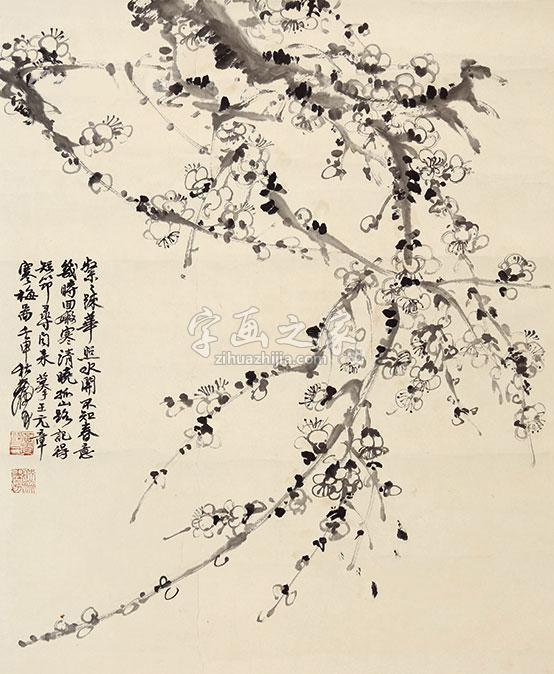 疎華照水開不知春意
幾時回嫩寒清曉孤山路記得
短尋句来摹王元章
寒梅啚壬申
字画之家
zihuazhijia.com